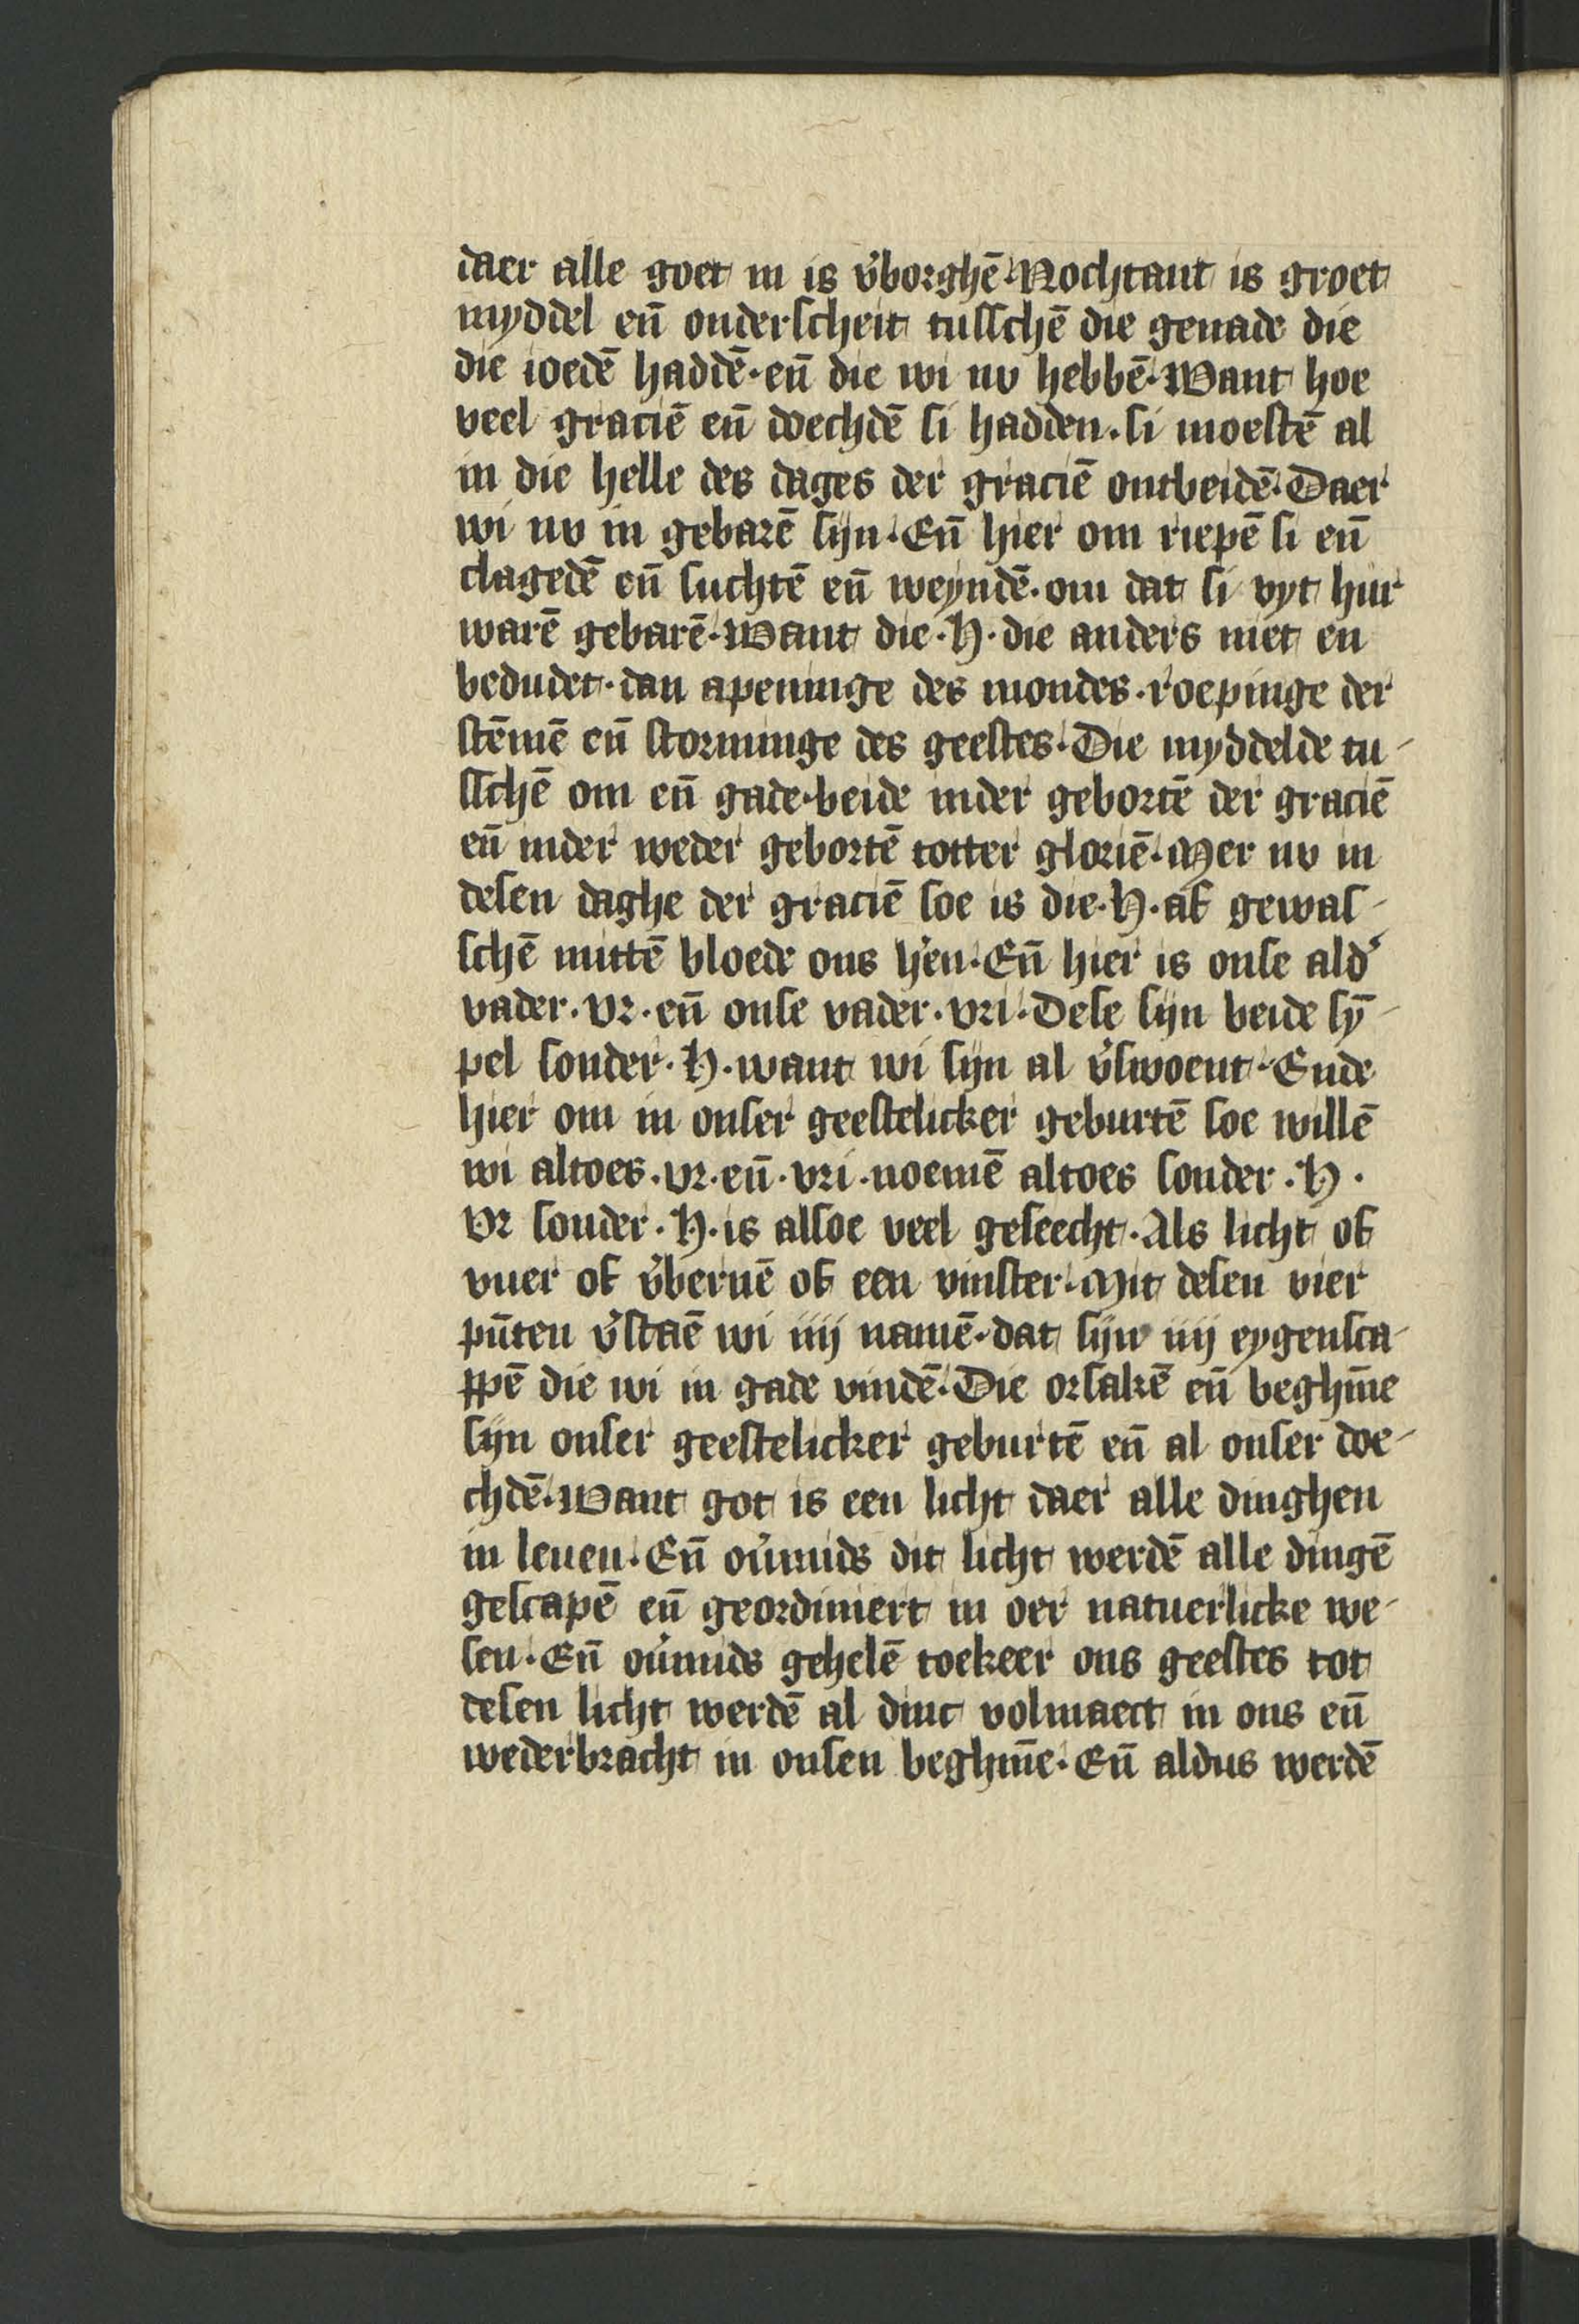 daer alle goet in is v̉borghē. Nochtant is groet
myddel eñ onderſcheit tuſſchē die genade die
die ioedē haddē. eñ die wi nv hebbē. Want hoe
veel graciē eñ doechdē ſi hadden. ſi moeſtē al
in die helle des dages der graciē ontbeidē. Daer
wi nv in gebarē ſijn. Eñ hier om riepē ſi eñ
clagedē eñ ſuchtē eñ weyndē. om dat ſi vyt hur
warē gebarē. Want die .H. die anders niet en
bedudet. dan apeninge des mondes. roepinge der
ſtēmē eñ ſtorminge des geeſtes. Die myddelde tu-
ſſchē om eñ gade. beide inder gebortē der graciē
eñ inder weder gebortē totter gloriē. Mer nv in
deſen daghe der graciē ſoe is die .H. af gewaſ-
ſchē mittē bloede ons h̓en. Eñ hier is onſe ald̓
vader. vr. eñ onſe vader. vri. Deſe ſijn beide ſȳ-
pel ſonder .H. want wi ſijn al v̉ſwoent. Ende
hier om in onſer geeſtelicker geburtē ſoe willē
wi altoes. vr. eñ. vri. noemē altoes ſonder .H.
vr ſonder .H. is alſoe veel geſeecht. Als licht of
vuer of v̉bernē of een vinſter. Mit deſen vier
pūten v̉ſtaē wi iiij namē. dat ſijn iiij eygenſca-
ppē die wi in gade vindē. Die orſakē eñ beghīne
ſijn onſer geeſtelicker geburtē eñ al onſer doe-
chdē. Want got is een licht daer alle dinghen
in leuen. Eñ ou̓mids dit licht werdē alle dingē
geſcapē eñ geordiniert in oer natuerlicke we-
ſen. Eñ ou̓mids gehelē toekeer ons geeſtes tot
deſen licht werdē al dinc volmaect in ons eñ
wederbracht in onſen beghīne. Eñ aldus werdē